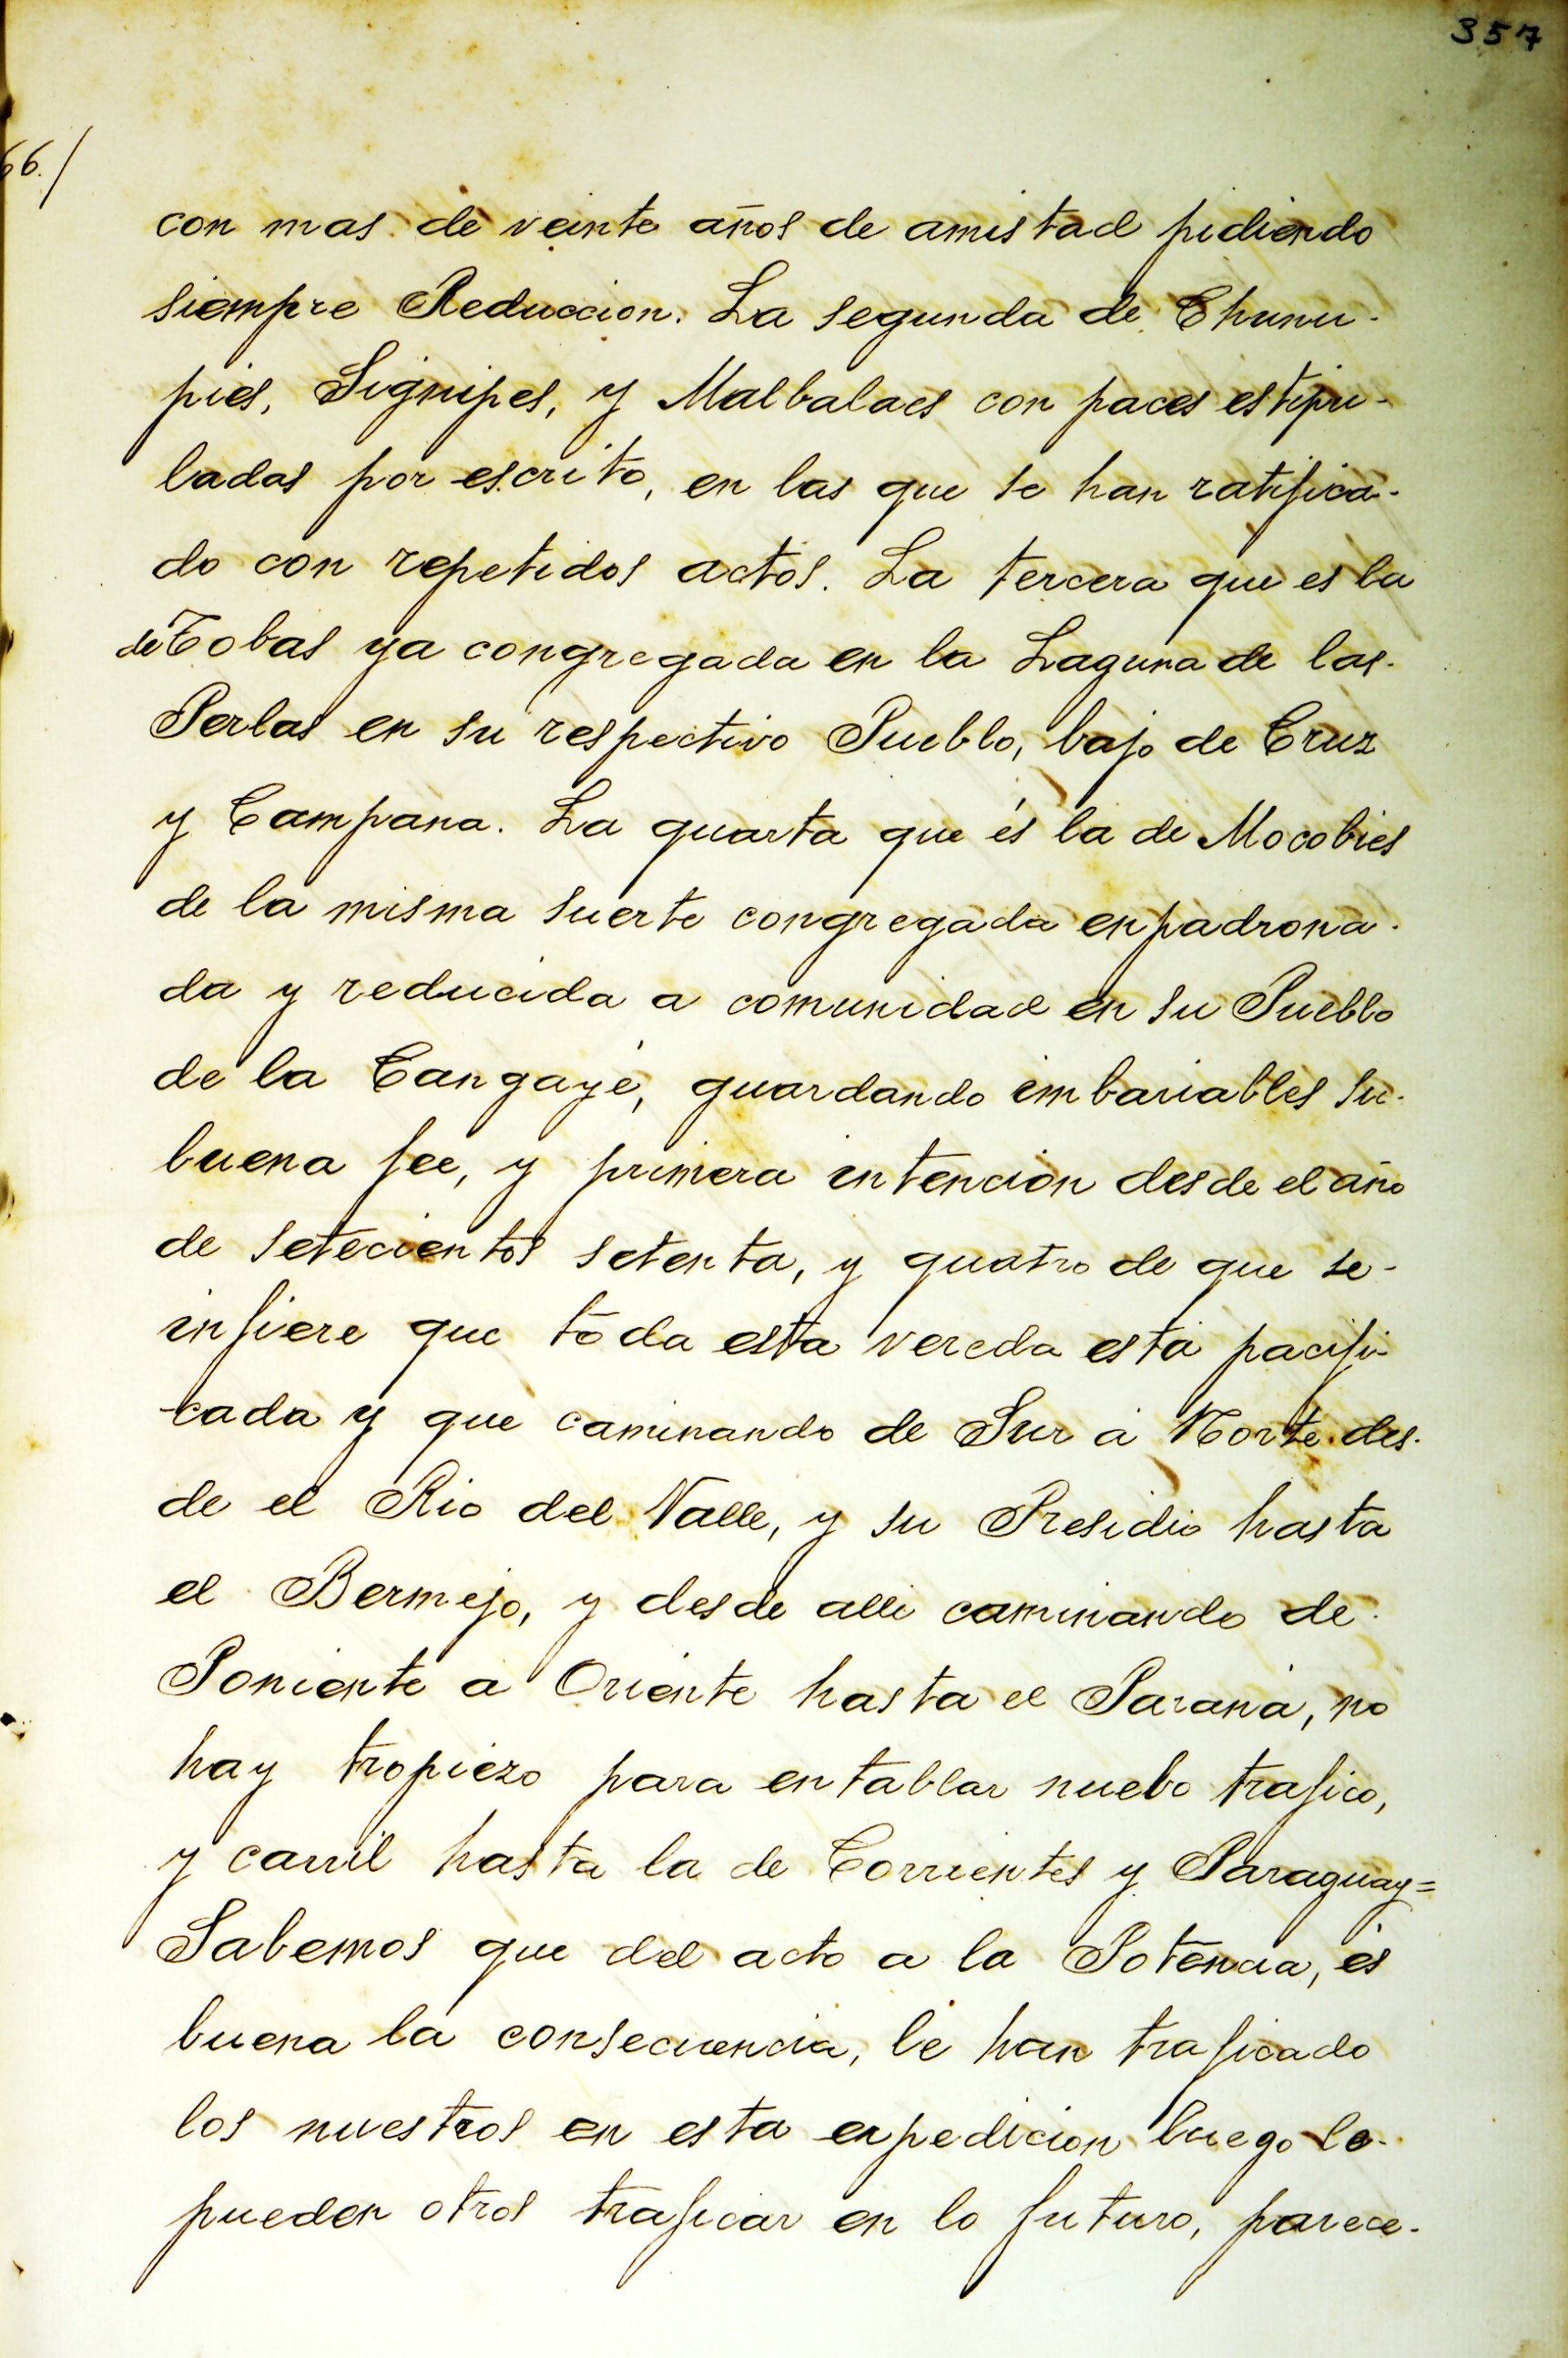 357
66./
con mas de veinte años de amistad pidiendo
siempre Reduccion. La segunda de Chunu-
pies, Signipes, y Malbalaes con paces estipu-
ladas por escrito, en las que se han ratifica-
do con repetidos actos. La tercera que es la
de Tobas ya congregada en la Laguna de las-
Perlas en su respectivo Pueblo, bajo de Cruz
y Campana. La quarta que és la de Mocobies
de la misma suerte congregada enpadrona-
da y reducida a comunidad en su Pueblo
de la Cangayé, guardando imbariables su-
buena fee, y primera intencion desde el año
de setecientos setenta, y quatro de que se-
infiere que toda esta vereda está pacifi-
cada y que caminando de Sur á Norte des-
de el Rio del Valle, y su Presidio hasta
el Bermejo, y desde alli caminando de-
Poniente a Oriente hasta el Paraná, no
hay tropiezo para entablar nuebo trafico,
y carril hasta la de Corrientes y Paraguay=
Sabemos que del acto a la Potencia, és
buena la consecuencia, le han traficado
los nuestros en esta expedicion luego le-
pueden otros traficar en lo futuro, parece-